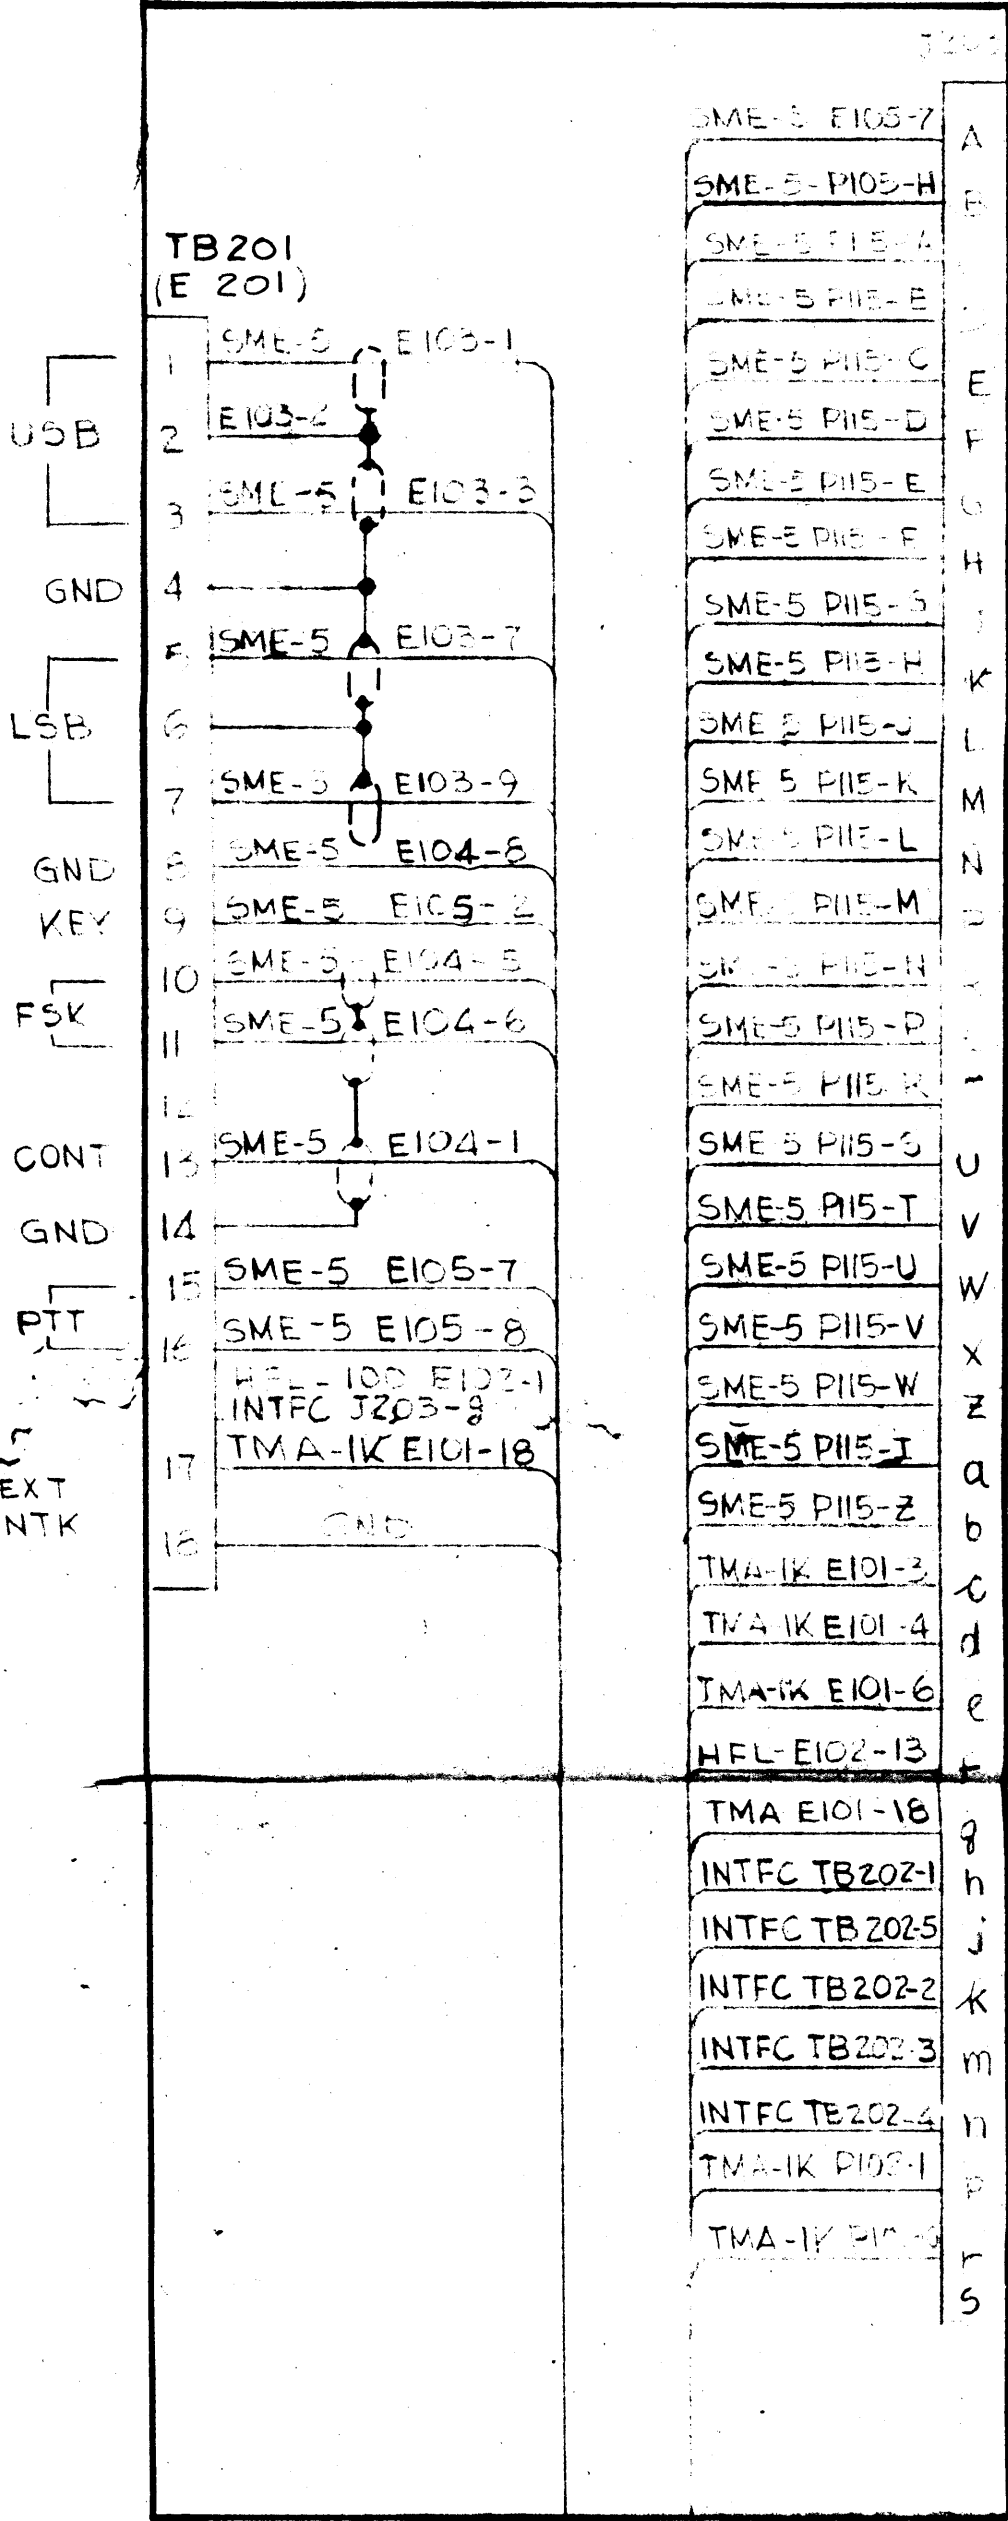 TB201
(E 201)
USB
1 SME-5 E103-1
2 E103-2
3 SME-5 E103-3
GND 4
LSB
5 SME-5 E103-7
6
7 SME-5 E103-9
GND 8 SME-5 E104-8
KEY 9 SME-5 E105-2
FSK
10 SME-5 E104-5
11 SME-5 E104-6
12
CONT 13 SME-5 E104-1
GND 14
PTT
15 SME-5 E105-7
16 SME-5 E105-8
HFL-100 E102-1
INTFC J203-g
17 TMA-1K E101-18
EXT
NTK
18 GND
SME-5 E105-7 A
SME-5-P105-H B
SME-5
SME-5 P115-B
SME-5 P115-C E
SME-5 P115-D F
SME-5 P115-E G
SME-5 P115-F H
SME-5 P115-G J
SME-5 P115-H K
SME 5 P115-J L
SME 5 P115-K M
SME-5 P115-L N
SME-5 P115-M P
SME-5 P115-N
SME-5 P115-P
SME-5 P115-R
SME 5 P115-S U
SME-5 P115-T V
SME-5 P115-U W
SME-5 P115-V X
SME-5 P115-W Z
SME-5 P115-I a
SME-5 P115-Z b
TMA-1K E101-3 c
TMA-1K E101-4 d
TMA-1K E101-6 e
HFL-E102-13 f
TMA E101-18 g
INTFC TB202-1 h
INTFC TB202-5 j
INTFC TB202-2 k
INTFC TB202-3 m
INTFC TB202-4 n
TMA-1K P103-1 p
TMA-1K r
s